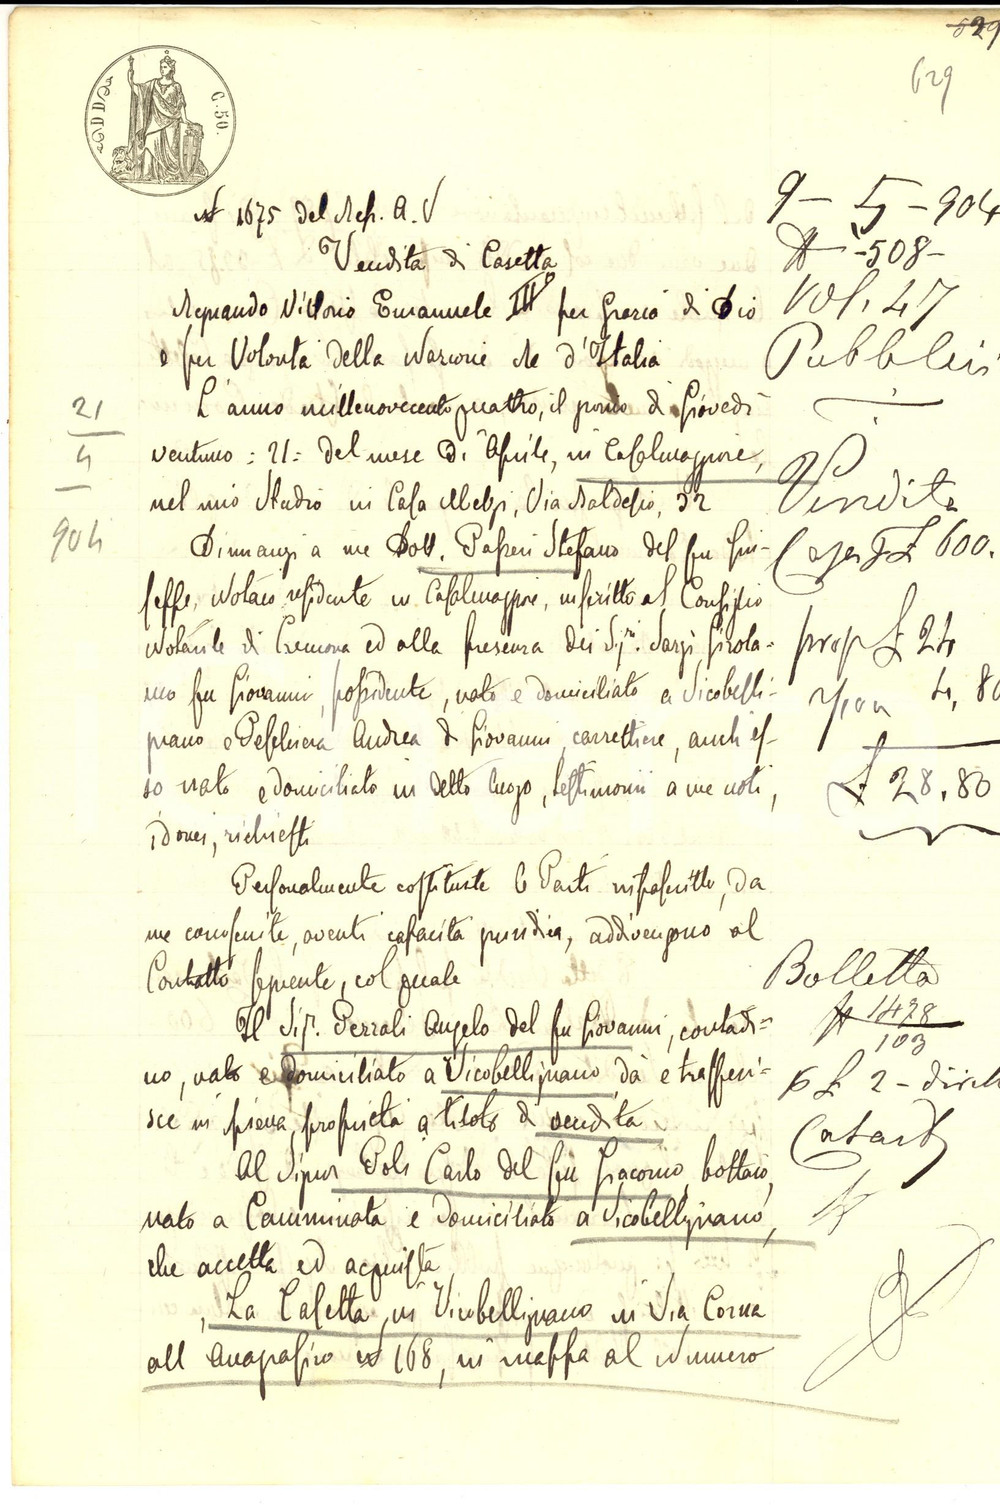 629
629
C. 50.
N 1675 del Rep. A. V
Vendita di Casetta
Regnando Vittorio Emanuele III° per grazia di Dio
e per Volontà della Nazione Re d'Italia
L'anno millenovecentoquattro, il giorno di Giovedì
ventuno = 21 = del mese di Aprile, in Casalmaggiore,
nel mio Studio in Casa Melzi, Via Baldesio, 32
Dinnanzi a me Dott. Passeri Stefano del fu Giu-
seppe, Notaio residente in Casalmaggiore, inscritto al Consiglio
Notarile di Cremona ed alla presenza dei Sig.ri Sarzi Girola-
mo fu Giovanni, possidente, nato e domiciliato a Vicobelli-
gnano e Andrea di Giovanni, carrettiere, anch'es-
so nato e domiciliato in detto luogo, testimonii a me noti,
idonei, richiesti
Personalmente costituite le Parti infrascritte, da
me conosciute, aventi capacità giuridica, addivengono al
Contratto seguente, col quale
Il Sig. Perrali Angelo del fu Giovanni, contadi-
no, nato e domiciliato a Vicobellignano, dà e trasferi-
sce in piena proprietà a titolo di vendita
Al Signor Poli Carlo del fu Giacomo, bottaio,
nato a Camminata e domiciliato a Vicobellignano,
che accetta ed acquista
La Casetta in Vicobellignano in Via Corna
all'Anagrafico N 168, in mappa al Numero
21
4
904
9 - 5 - 904
N - 508 -
Vol. 47
Pubblici
Vendita
Casa £ 600.
prop £ 24
4,80
£ 28,80
Bolletta
N 1478
103
£ 2 - diritt
Catast